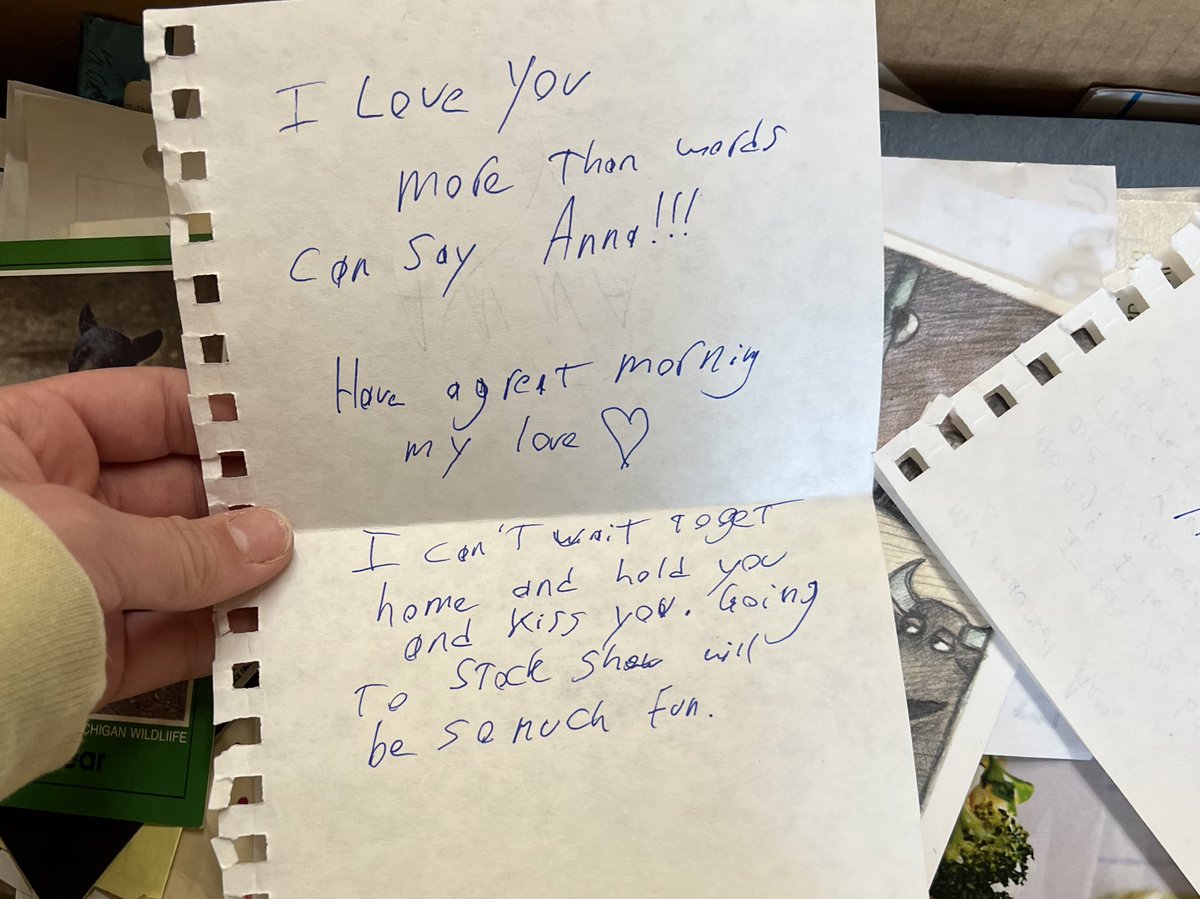 I Love You
more Than words
Can Say Anna!!!
Have a great morning
my love ♡
I can't wait To get
home and hold you
and kiss you. Going
To Stock Show will
be so much fun.
CHIGAN WILDLIFE
ear